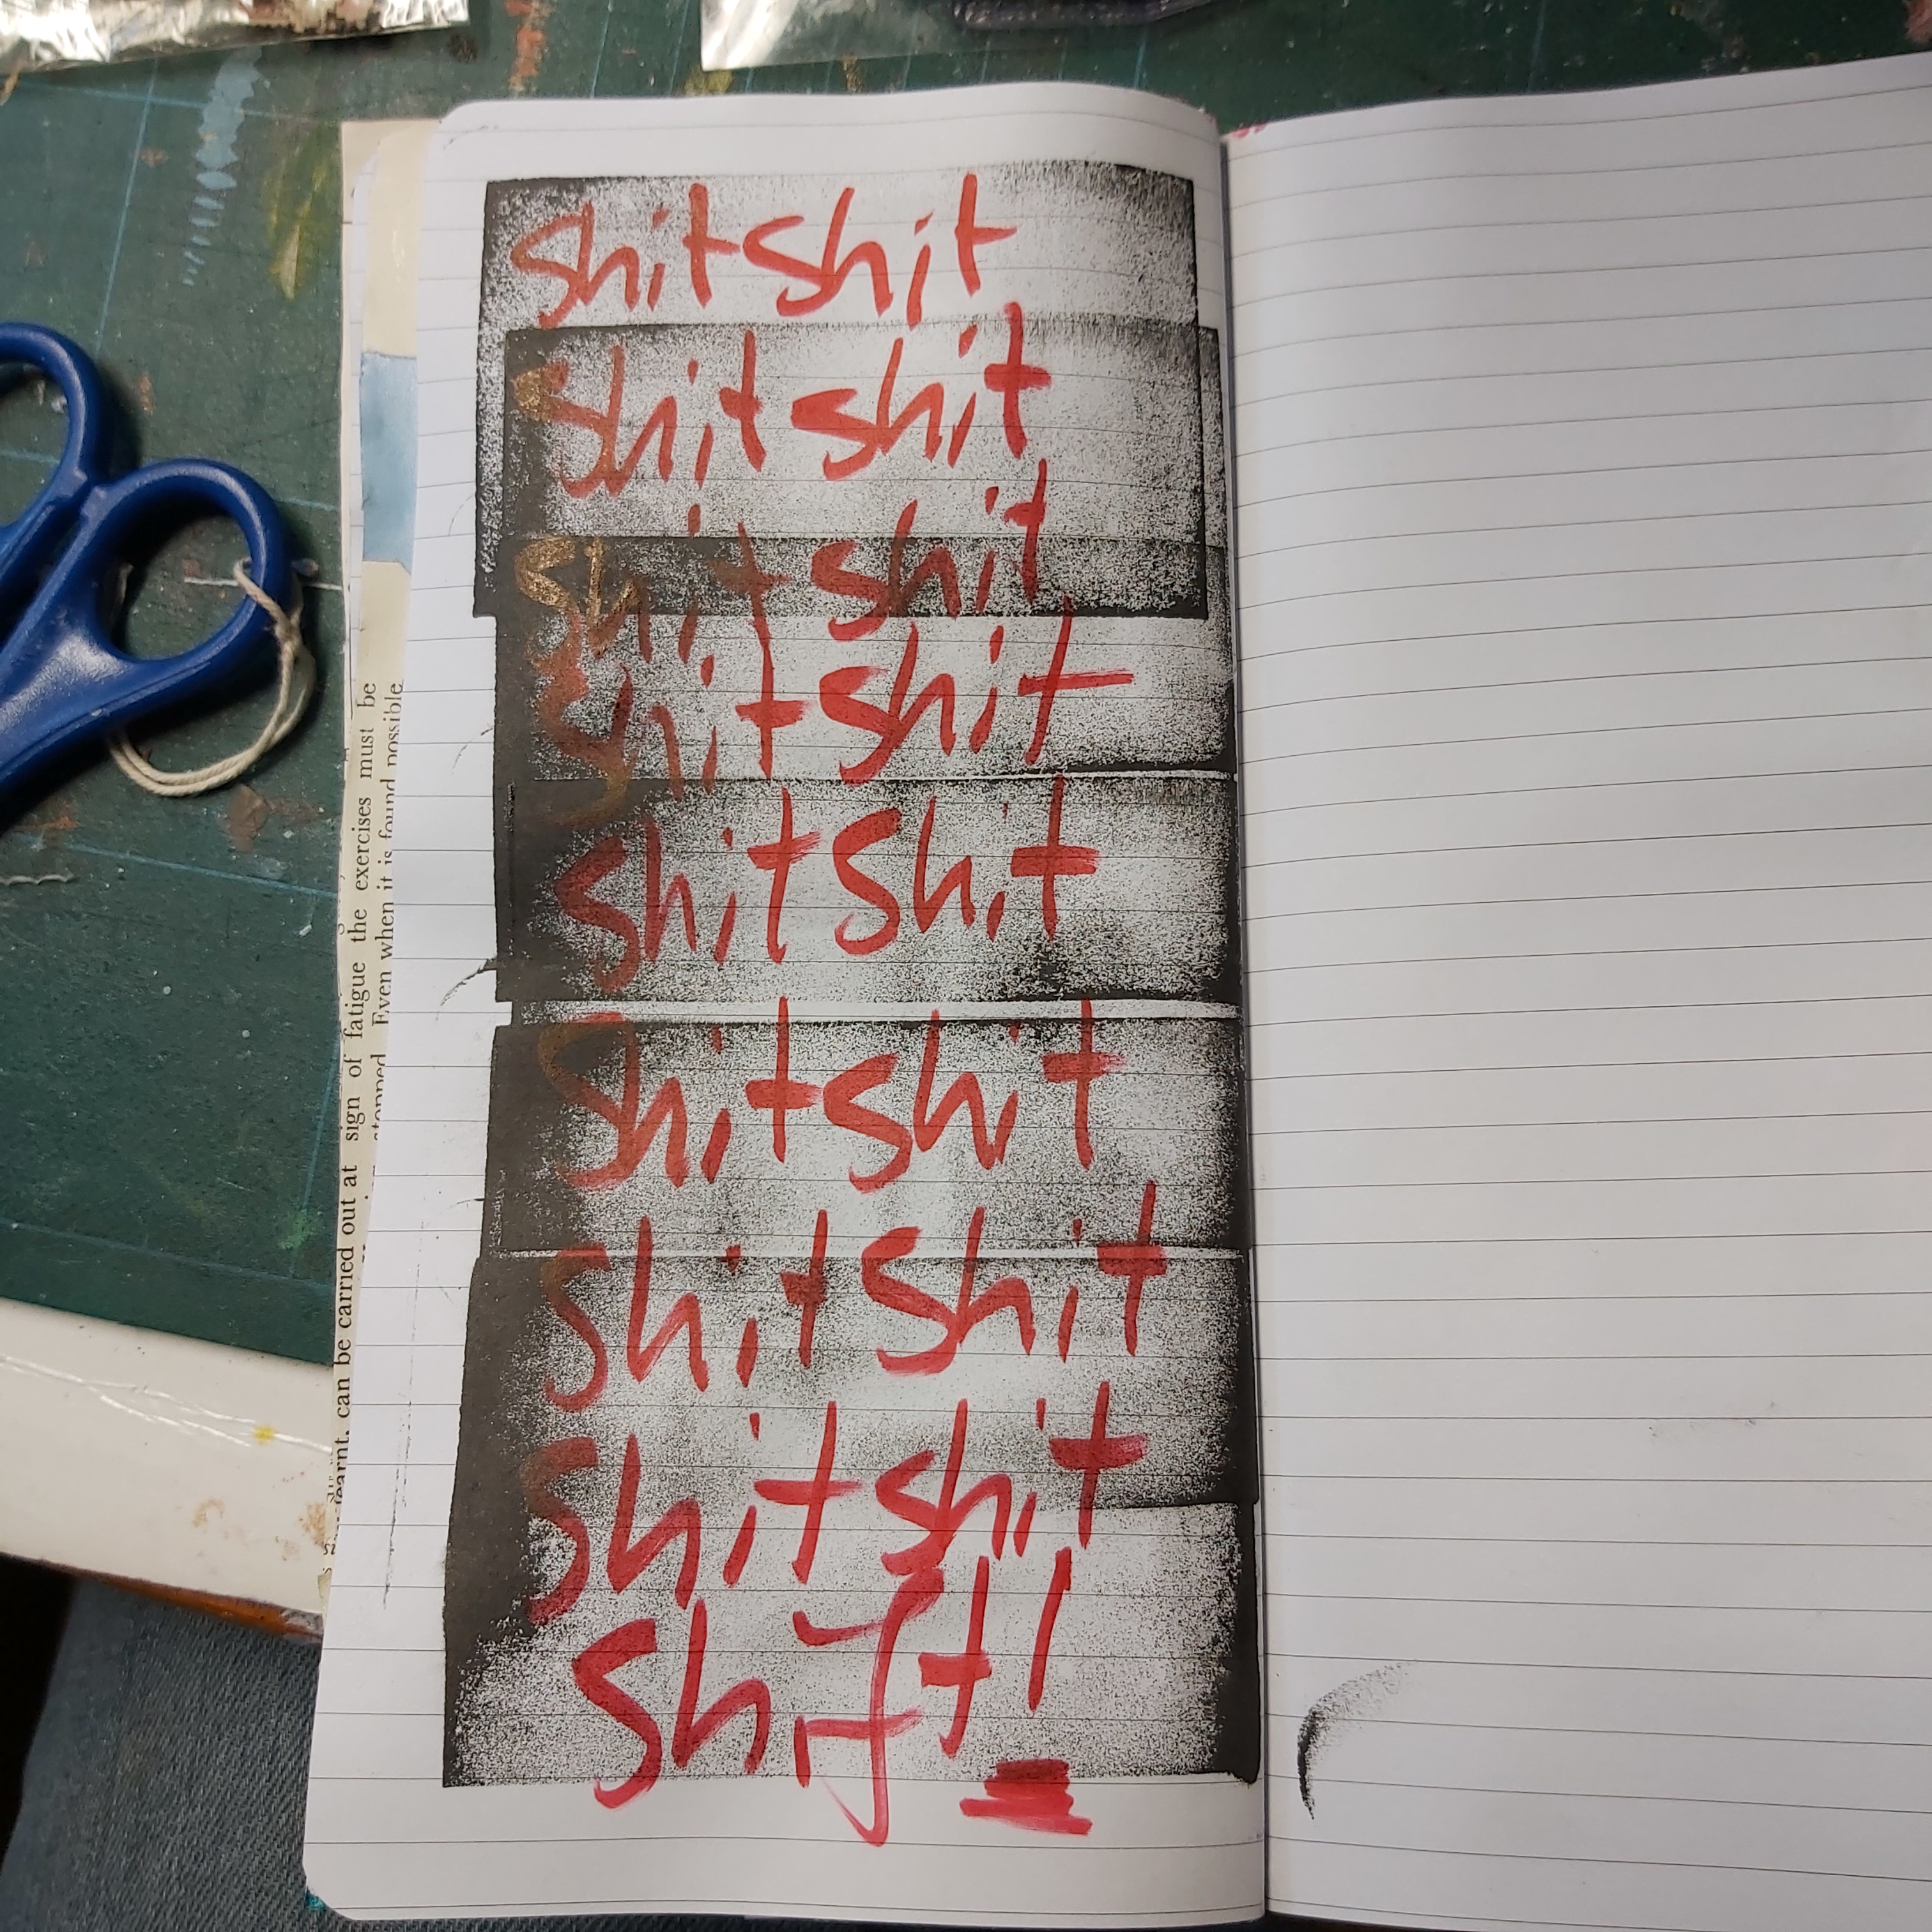 shitshit
shitshit
shitshit
shitshit
shitshit
shitshit
shitshit
shitshit
Shift!
learnt, can be carried out at sign of fatigue the exercises must be
stopped Even when it is found possible